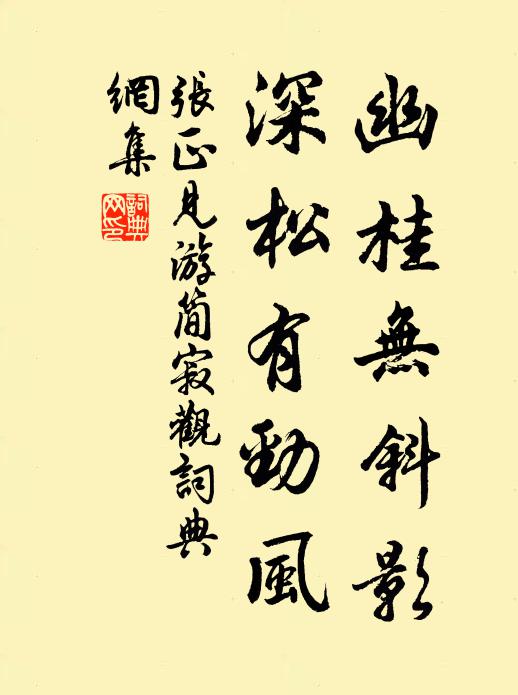 幽桂無斜影
深松有勁風
張正見游簡寂觀詞典
網集
詞典網印